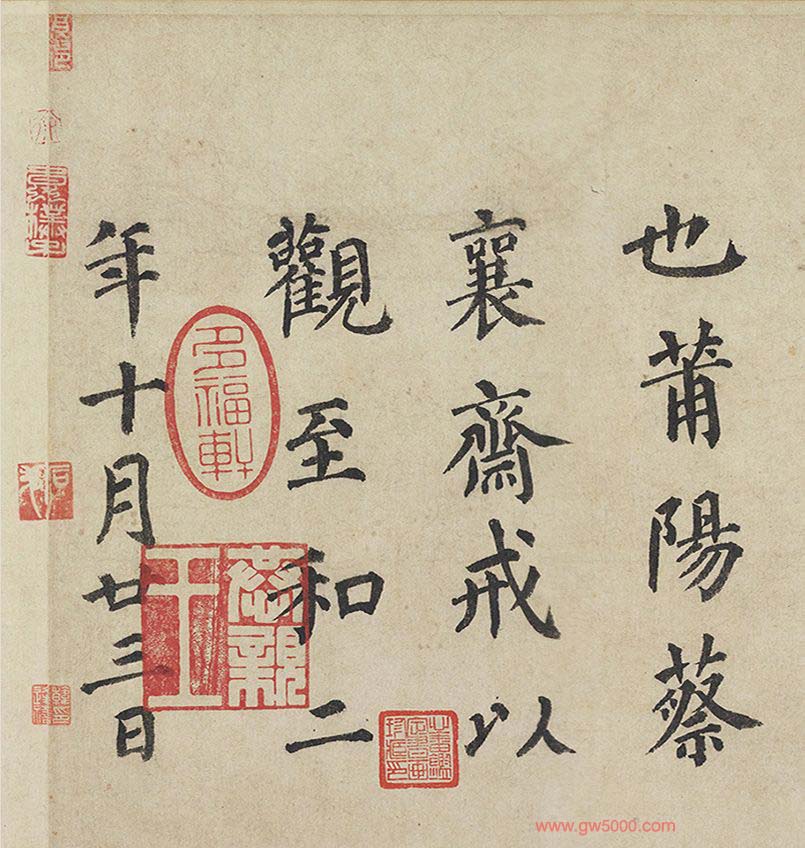 也莆陽蔡
襄齋戒以
觀至和二
年十月廿三日
多福軒
恭親王
www.gw5000.com